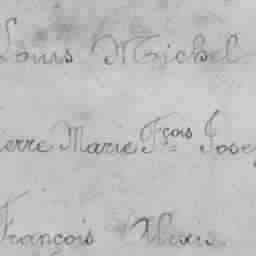 Louis Michel
ierre Marie Fçois Jose
François Alexis